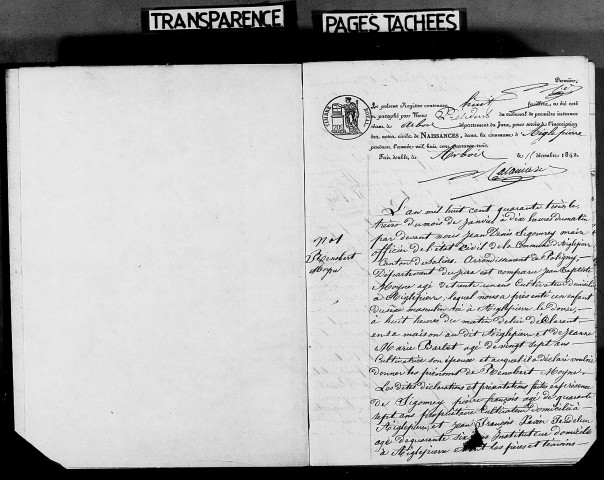 TRANSPARENCE
PAGES TACHEES
Première,
Le présent Registre contenant huit feuillets, a été coté
et paraphé par Nous Président du tribunal de première instance
séant à Arbois département du Jura, pour servir à l'inscription
des actes civils de NAISSANCES, dans la commune d'Aiglepierre
pendant l'année mil huit cent quarante-trois.
Fait double, à Arbois le 15 décembre 1842.
L'an mil huit cent quarante trois le
treize du mois de janvier à dix heures du matin
par devant nous Jean Denis Sigonney maire
officier de l'état Civil de la Commune d'Aiglepierre
Canton de Salins, Arrondissement de Poligny,
Département du Jura est comparu Jean Baptiste
Moyne agé de trente un ans Cultivateur domicilié
à Aiglepierre, lequel nous a présenté un enfant
du sexe masculin né à Aiglepierre le douze,
à huit heures du matin de lui déclarant
en sa maison au dit Aiglepierre et de Jeanne
Marie Bartet agé de vingt sept ans
Cultivatrice son épouse et auquel il a déclaré vouloir
donner les prénoms de Renobert Moyne
Les dites déclaration et présentation faites en présence
de Sigonney pierre françois agé de quarante
sept ans propriétaire Cultivateur domicilié à
Aiglepierre, et Jean François Xavier
agé de quarante six ans Instituteur domicilié
à Aiglepierre et ont les pères et témoins
No 1
Renobert
Moyne